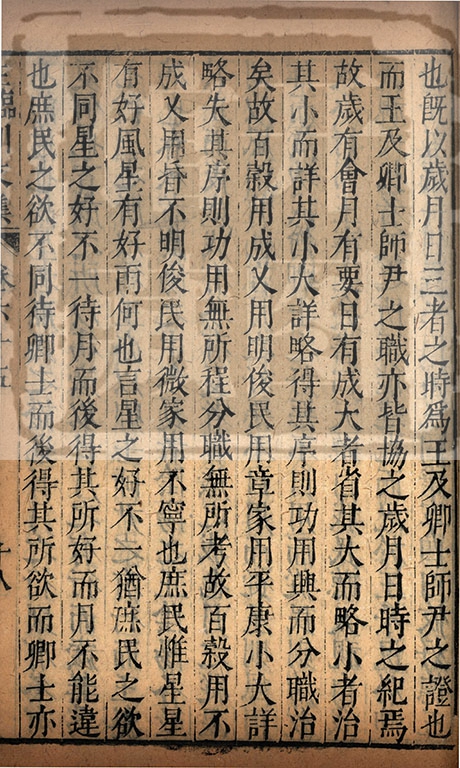 也既以歲月日三者之時爲王及卿士師尹之證也
而王及卿士師尹之職亦皆協之歲月日時之紀焉
故歲有會月有要日有成大者省其大而略小者治
其小而詳其小大詳略得其序則功用興而分職治
矣故百穀用成乂用明俊民用章家用平康小大詳
略失其序則功用無所程分職無所考故百穀用不
成乂用昏不明俊民用微家用不寧也庶民惟星星
有好風星有好雨何也言星之好不一猶庶民之欲
不同星之好不一待月而後得其所好而月不能違
也庶民之欲不同待卿士而後得其所欲而卿士亦
王臨川文集 卷六十五 十八